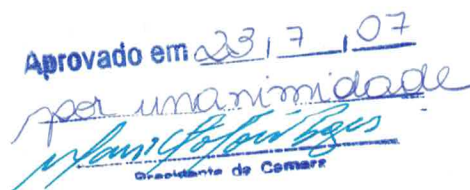 Aprovado em 23 / 7 / 07
por unanimidade
Presidente da Camara